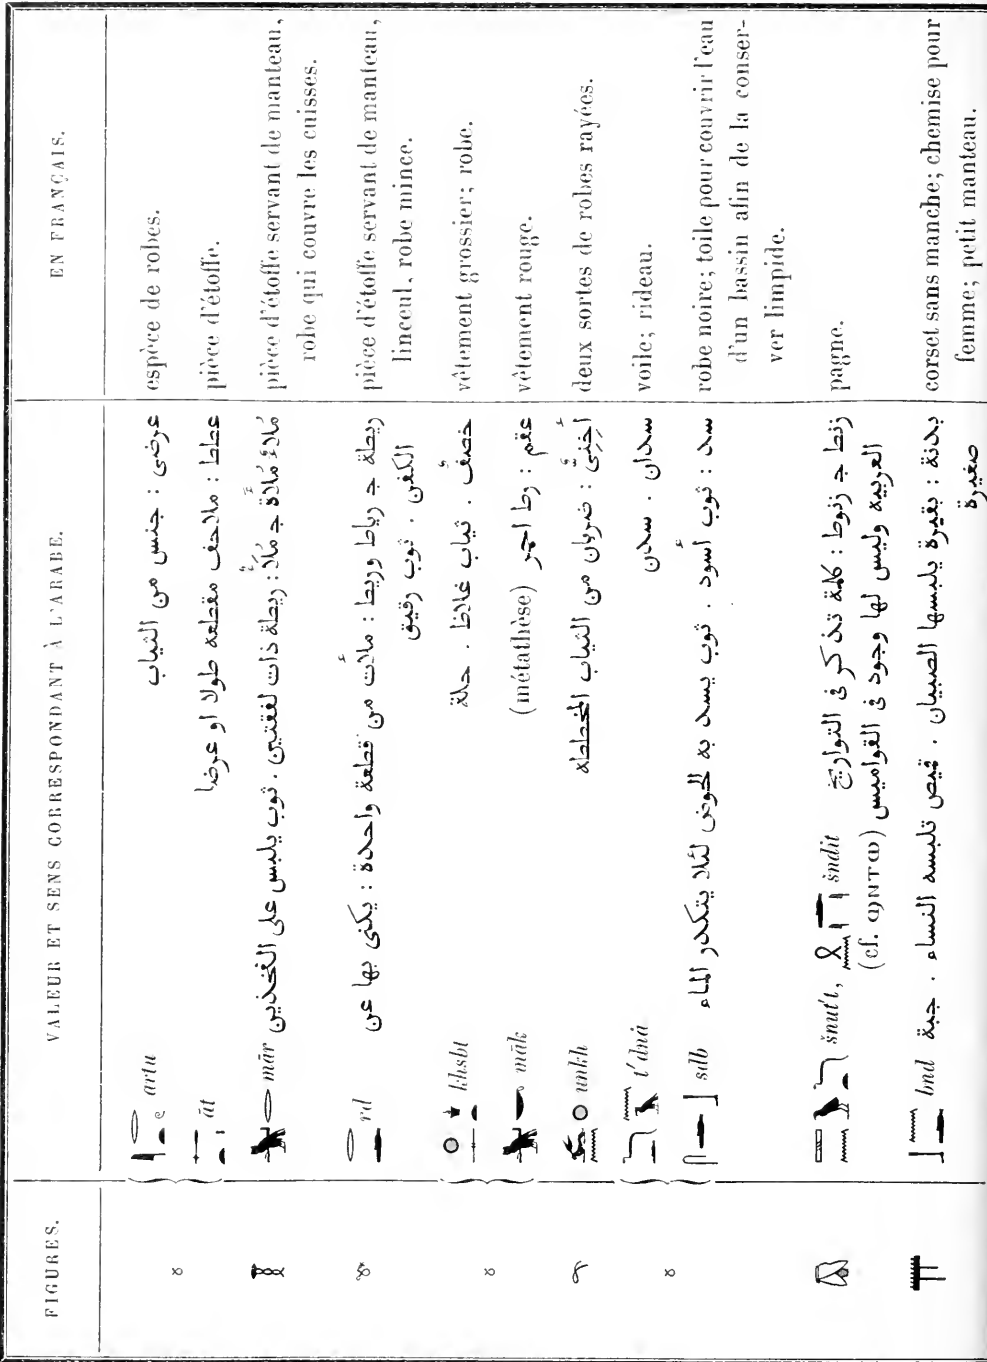 FIGURES. VALEUR ET SENS CORRESPONDANT À L'ARABE. EN FRANÇAIS.
artu عرضى : جنس من الثياب espèce de robes.
āt عطاط : ملاحف مقطعه طولا او عرضا pièce d'étoffe.
mār مُلاءٌ مُلاءَة ج مُلأٌ : ريطة ذات لفقتين . ثوب يلبس على الفخذين pièce d'étoffe servant de manteau,
robe qui couvre les cuisses.
rd ريطة ج رياط وريط : ملأت من قطعة واحدة : يكنى بها عن pièce d'étoffe servant de manteau,
الكفن . ثوب رقيق linceul, robe mince.
khsbt خصف . ثياب غلاظ . حلة vêtement grossier; robe.
māk (métathèse) عقم : وط احمر vêtement rouge.
unkh أَخِنىٌّ : ضربان من الثياب المخططه deux sortes de robes rayées.
t'dnà سدان . سدن voile; rideau.
sdb سد : ثوب أسود . ثوب يسد به الحوض لئلا يتكدر الماء robe noire; toile pour couvrir l'eau
d'un bassin afin de la conser-
ver limpide.
šnut't, šndit زنط ج زنوط : كلمة تذكر فى التواريخ pagne.
(cf. ϣⲛⲧⲱ) العربيه وليس لها وجود فى القواميس
bnd بدنة : بقيرة يلبسها الصبيان . قيص تلبسه النساء . جبة corset sans manche; chemise pour
صغيرة femme; petit manteau.